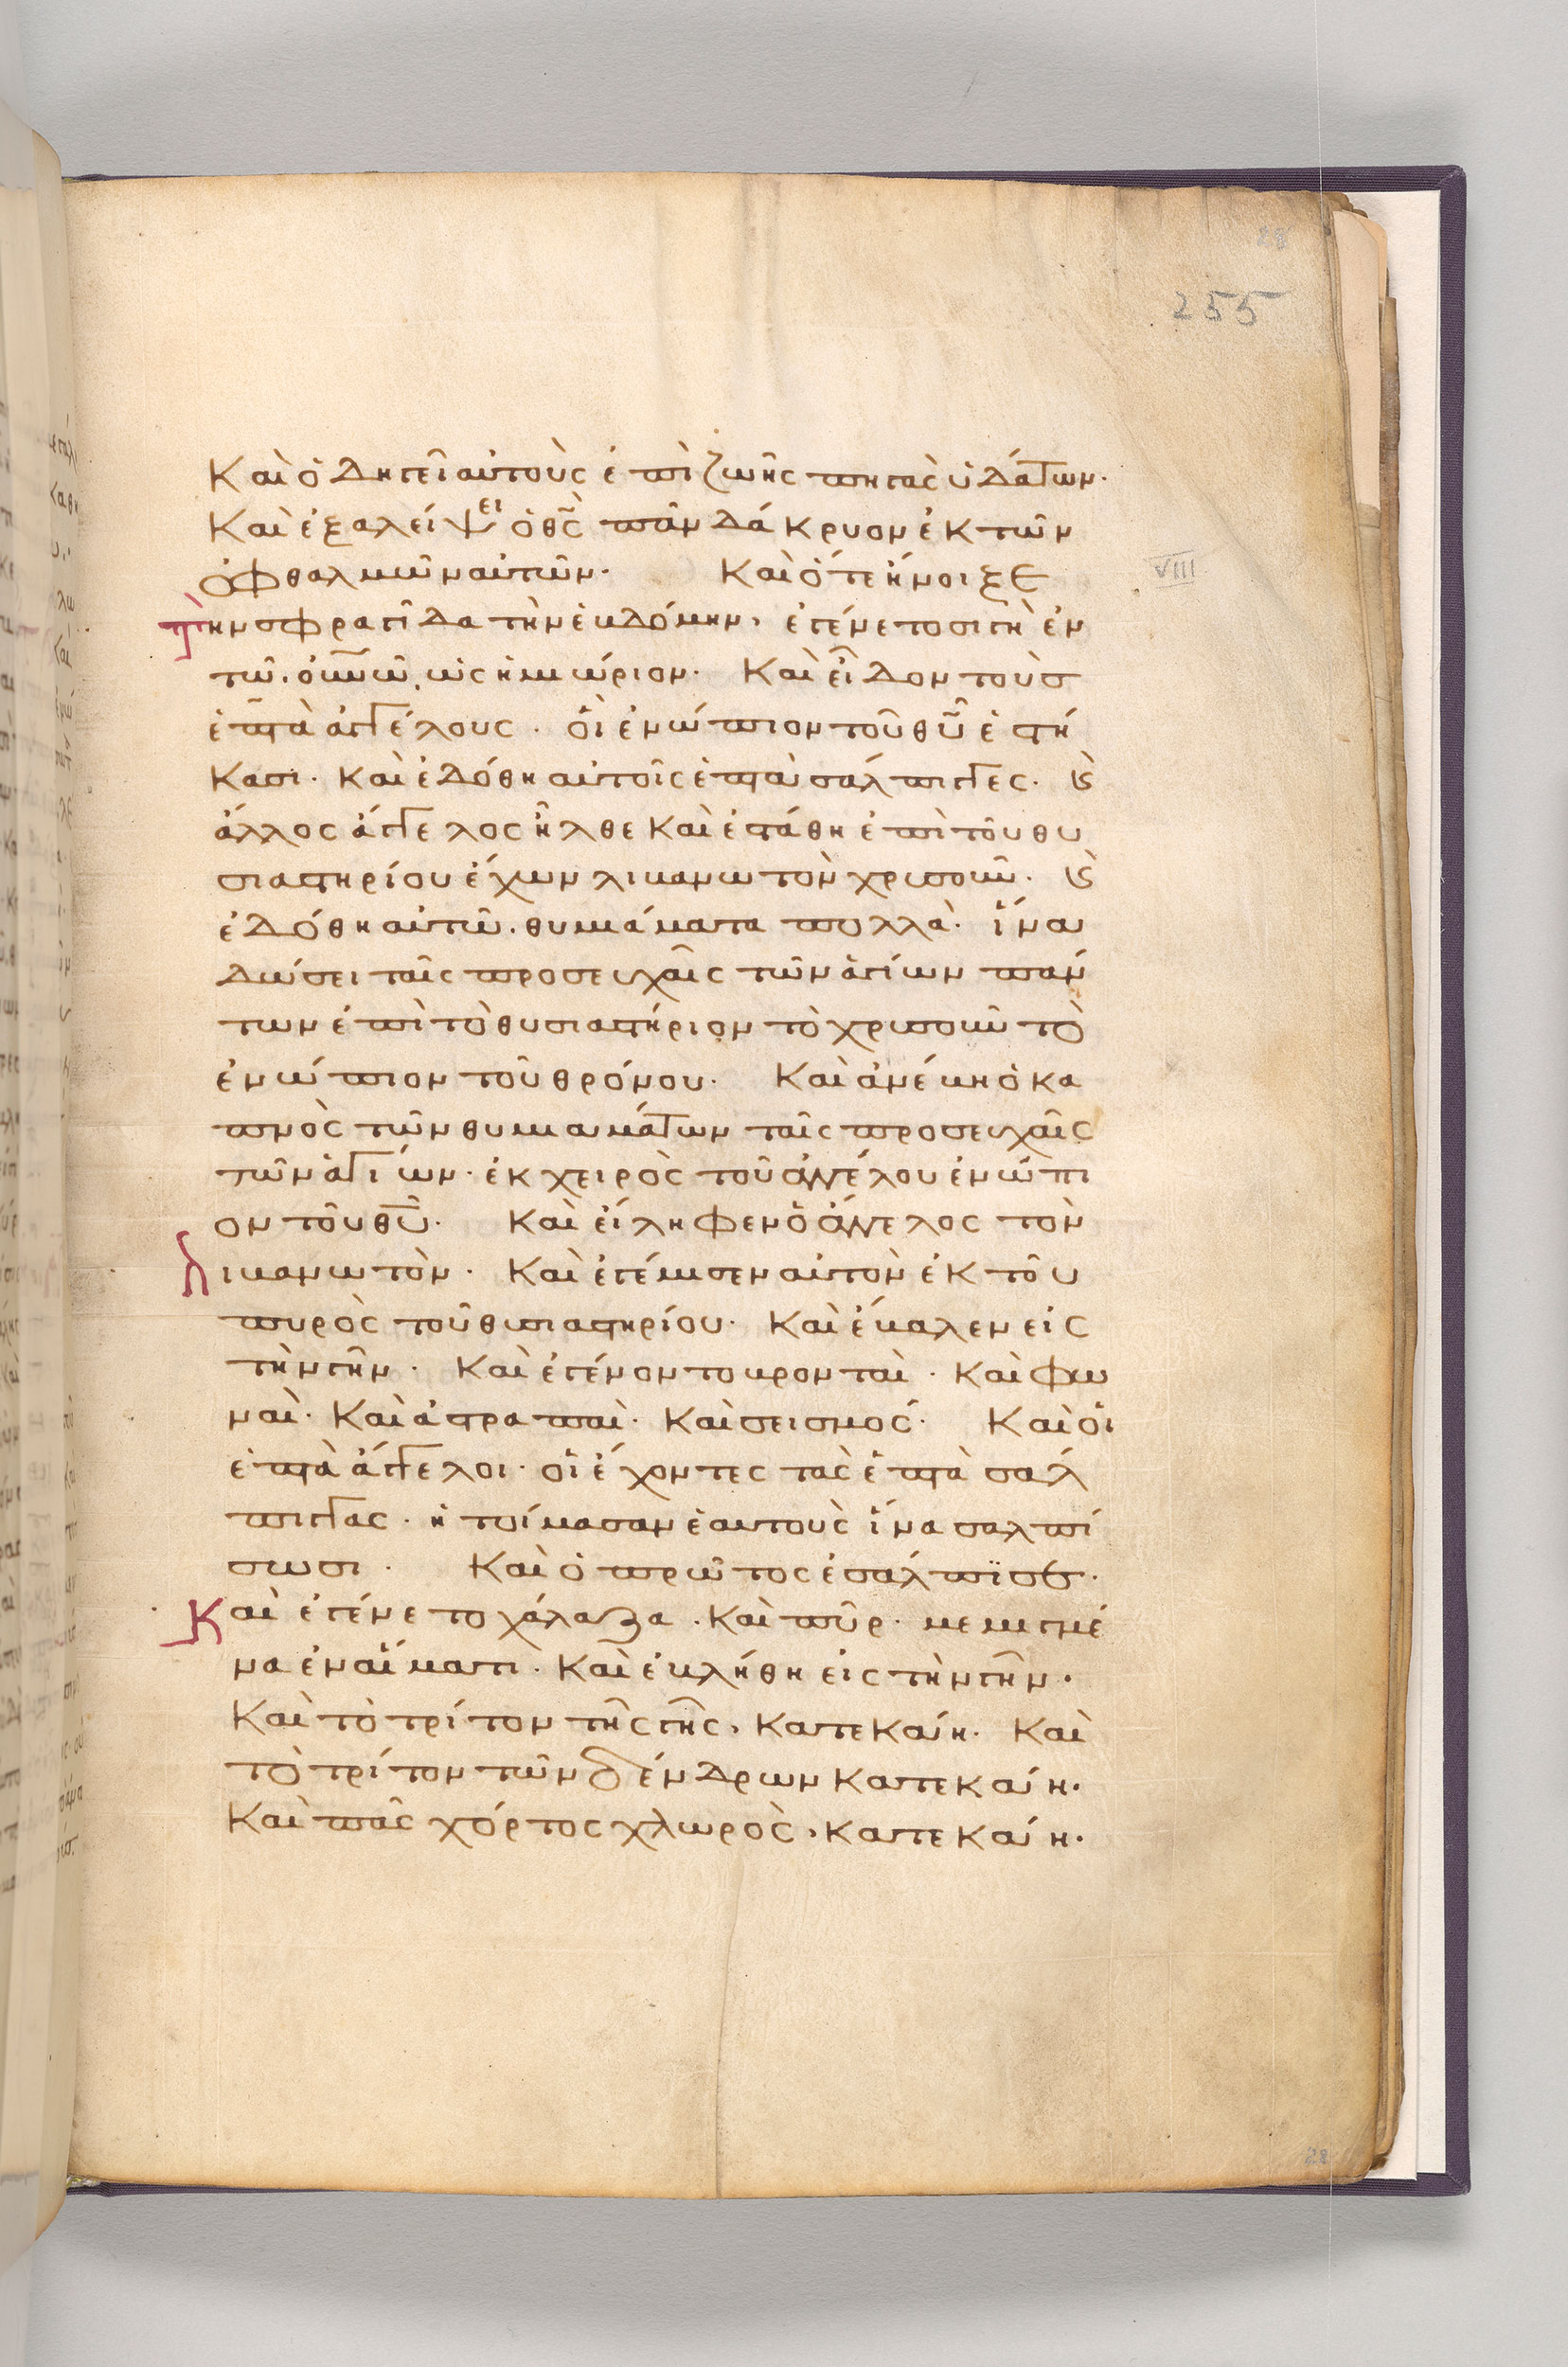 28
255
Καὶ ὁδηγεῖ αὐτοὺς ἐπὶ ζωῆς πηγὰς ὑδάτων·
Καὶ ἐξαλείψει ὁ θς̅ πᾶν δάκρυον ἐκ τῶν
ὀφθαλμῶν αὐτῶν· Καὶ ὅτε ἤνοιξε
VIII
τὴν σφραγῖδα τὴν ἑβδόμην, ἐγένετο σιγὴ ἐν
τῶ οὐνῶ̅, ὡς ἡμιώριον· Καὶ εἶδον τοὺσ
ἑπτὰ ἀγγέλους · οἳ ἐνώπιον τοῦ θυ̅ ἑστή
κασι · καὶ ἐδόθη αὐτοῖς ἑπτὰ σάλπιγγες · ϗ̀
ἄλλος ἄγγελος ἦλθε καὶ ἐστάθη ἐπὶ τοῦ θυ
σιαστηρίου ἔχων λιβανωτὸν χρυσοῦν · ϗ̀
ἐδόθη αὐτῶ · θυμιάματα πολλὰ · ἵνα
δώσει ταῖς προσευχαῖς τῶν ἁγίων πάν
των ἐπὶ τὸ θυσιαστήριον τὸ χρυσοῦν τὸ
ἐνώπιον τοῦ θρόνου · Καὶ ἀνέβη ὁ κα
πνὸς τῶν θυμιαμάτων ταῖς προσευχαῖς
τῶν ἁγίων · ἐκ χειρὸς τοῦ ἀγγέλου ἐνώπι
ον τοῦ θυ̅ · Καὶ εἴληφεν ὁ ἄγγελος τὸν
λιβανωτὸν · Καὶ ἐγέμισεν αὐτὸν ἐκ τοῦ
πυρὸς τοῦ θυσιαστηρίου · Καὶ ἔβαλεν εἰς
τὴν γῆν · Καὶ ἐγένοντο βρονταὶ · Καὶ φω
ναὶ · Καὶ ἀστραπαὶ · Καὶ σεισμός · Καὶ οἱ
ἑπτὰ ἄγγελοι · οἱ ἔχοντες τὰς ἑπτὰ σάλ
πιγγας · ἡτοίμασαν ἑαυτοὺς ἵνα σαλπί
σωσι · Καὶ ὁ πρῶτος ἐσάλπϊσεν ·
Καὶ ἐγένετο χάλαζα · Καὶ πῦρ · μεμιγμέ
να ἐν αἵματι · Καὶ ἐβλήθη εἰς τὴν γῆν ·
Καὶ τὸ τρίτον τῆς γῆς, κατεκάη · Καὶ
τὸ τρίτον τῶν δένδρων κατεκάη ·
Καὶ πᾶς χόρτος χλωρὸς, κατεκάη ·
28